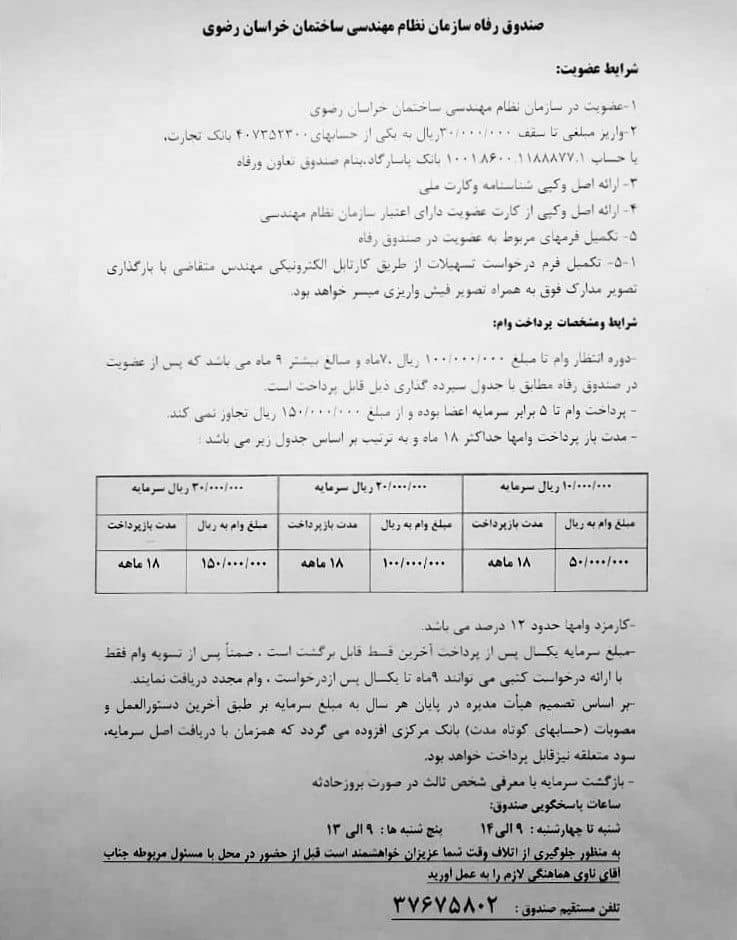 صندوق رفاه سازمان نظام مهندسی ساختمان خراسان رضوی
شرایط عضویت:
۱-عضویت در سازمان نظام مهندسی ساختمان خراسان رضوی
۲-واریز مبلغی تا سقف ۳۰/۰۰۰/۰۰۰ریال به یکی از حسابهای۴۰۷۳۵۲۳۰۰ بانک تجارت،
یا حساب ۱۰۰۱.۸۶۰۰.۱۱۸۸۸۷۷.۱ بانک پاسارگاد،بنام صندوق تعاون ورفاه
۳- ارائه اصل وکپی شناسنامه وکارت ملی
۴- ارائه اصل وکپی از کارت عضویت دارای اعتبار سازمان نظام مهندسی
۵- تکمیل فرمهای مربوط به عضویت در صندوق رفاه
۵-۱- تکمیل فرم درخواست تسهیلات از طریق کارتابل الکترونیکی مهندس متقاضی با بارگذاری
تصویر مدارک فوق به همراه تصویر فیش واریزی میسر خواهد بود.
شرایط ومشخصات پرداخت وام:
-دوره انتظار وام تا مبلغ ۱۰۰/۰۰۰/۰۰۰ ریال ،۷ماه و مبالغ بیشتر ۹ ماه می باشد که پس از عضویت
در صندوق رفاه مطابق با جدول سپرده گذاری ذیل قابل پرداخت است.
- پرداخت وام تا ۵ برابر سرمایه اعضا بوده و از مبلغ ۱۵۰/۰۰۰/۰۰۰ ریال تجاوز نمی کند.
- مدت باز پرداخت وامها حداکثر ۱۸ ماه و به ترتیب بر اساس جدول زیر می باشد :
۱۰/۰۰۰/۰۰۰ ریال سرمایه ۲۰/۰۰۰/۰۰۰ ریال سرمایه ۳۰/۰۰۰/۰۰۰ ریال سرمایه
مبلغ وام به ریال مدت بازپرداخت مبلغ وام به ریال مدت بازپرداخت مبلغ وام به ریال مدت بازپرداخت
۵۰/۰۰۰/۰۰۰ ۱۸ ماهه ۱۰۰/۰۰۰/۰۰۰ ۱۸ ماهه ۱۵۰/۰۰۰/۰۰۰ ۱۸ ماهه
-کارمزد وامها حدود ۱۲ درصد می باشد.
-مبلغ سرمایه یکسال پس از پرداخت آخرین قسط قابل برگشت است ، ضمناً پس از تسویه وام فقط
با ارائه درخواست کتبی می توانند ۹ماه تا یکسال پس ازدرخواست ، وام مجدد دریافت نمایند.
-بر اساس تصمیم هیأت مدیره در پایان هر سال به مبلغ سرمایه بر طبق آخرین دستورالعمل و
مصوبات (حسابهای کوتاه مدت) بانک مرکزی افزوده می گردد که همزمان با دریافت اصل سرمایه،
سود متعلقه نیزقابل پرداخت خواهد بود.
- بازگشت سرمایه با معرفی شخص ثالث در صورت بروزحادثه
ساعات پاسخگویی صندوق:
شنبه تا چهارشنبه : ۹ الی ۱۴ پنج شنبه ها : ۹ الی ۱۳
به منظور جلوگیری از اتلاف وقت شما عزیزان خواهشمند است قبل از حضور در محل با مسئول مربوطه جناب
آقای ناوی هماهنگی لازم را به عمل آورید
تلفن مستقیم صندوق : ۳۷۶۷۵۸۰۲